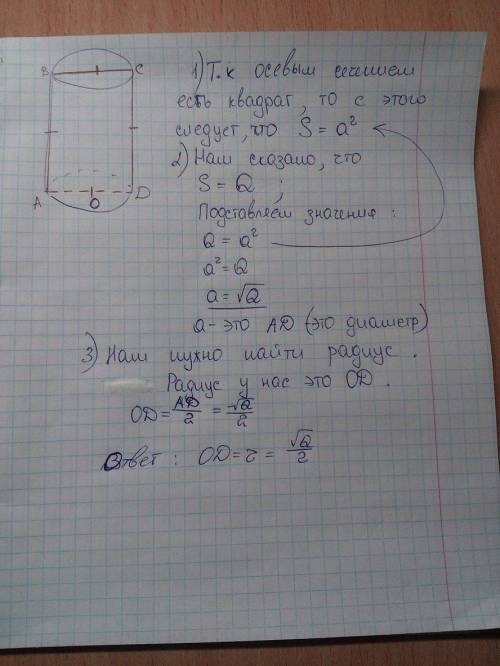 B C
A O D
1) Т.к осевым сечением
есть квадрат, то с этого
следует, что S = a²
2) Нам сказано, что
S = Q ;
Подставляем значения:
Q = a²
a² = Q
a = √Q
a - это AD (это диаметр)
3) Нам нужно найти радиус.
Радиус у нас это OD.
OD = AD/2 = √Q/2
Ответ: OD = r = √Q/2